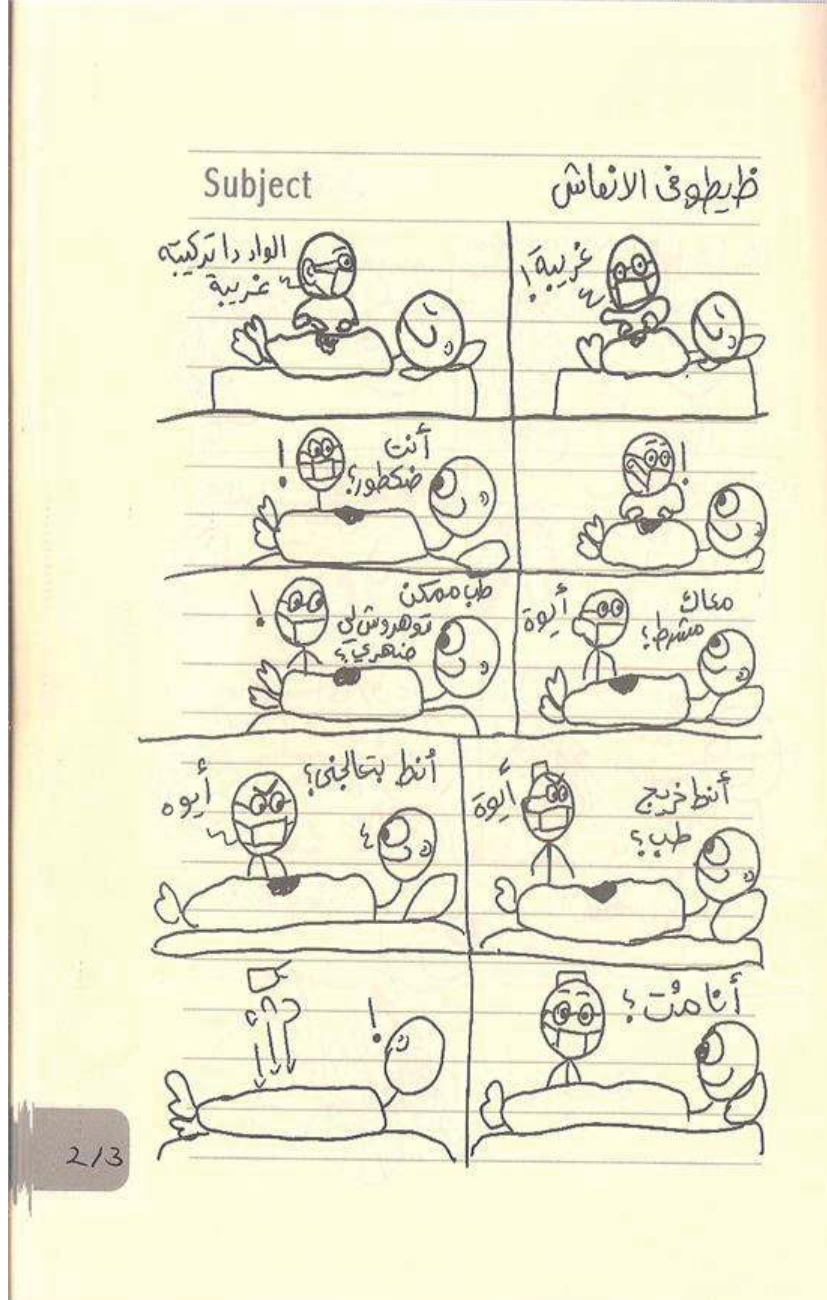 Subject
ظيطو فى الانعاش
غريبة!
الواد دا تركيبته
غريبة
!
أنت
ضكطور؟
!
معاك
مشرط؟
أيوة
طب ممكن
توهروش لي
ضهري؟
!
أنط خريج
طب؟
أيوة
أنط بتعالجنى؟
أيوه
أنا مُت؟
!
2/3